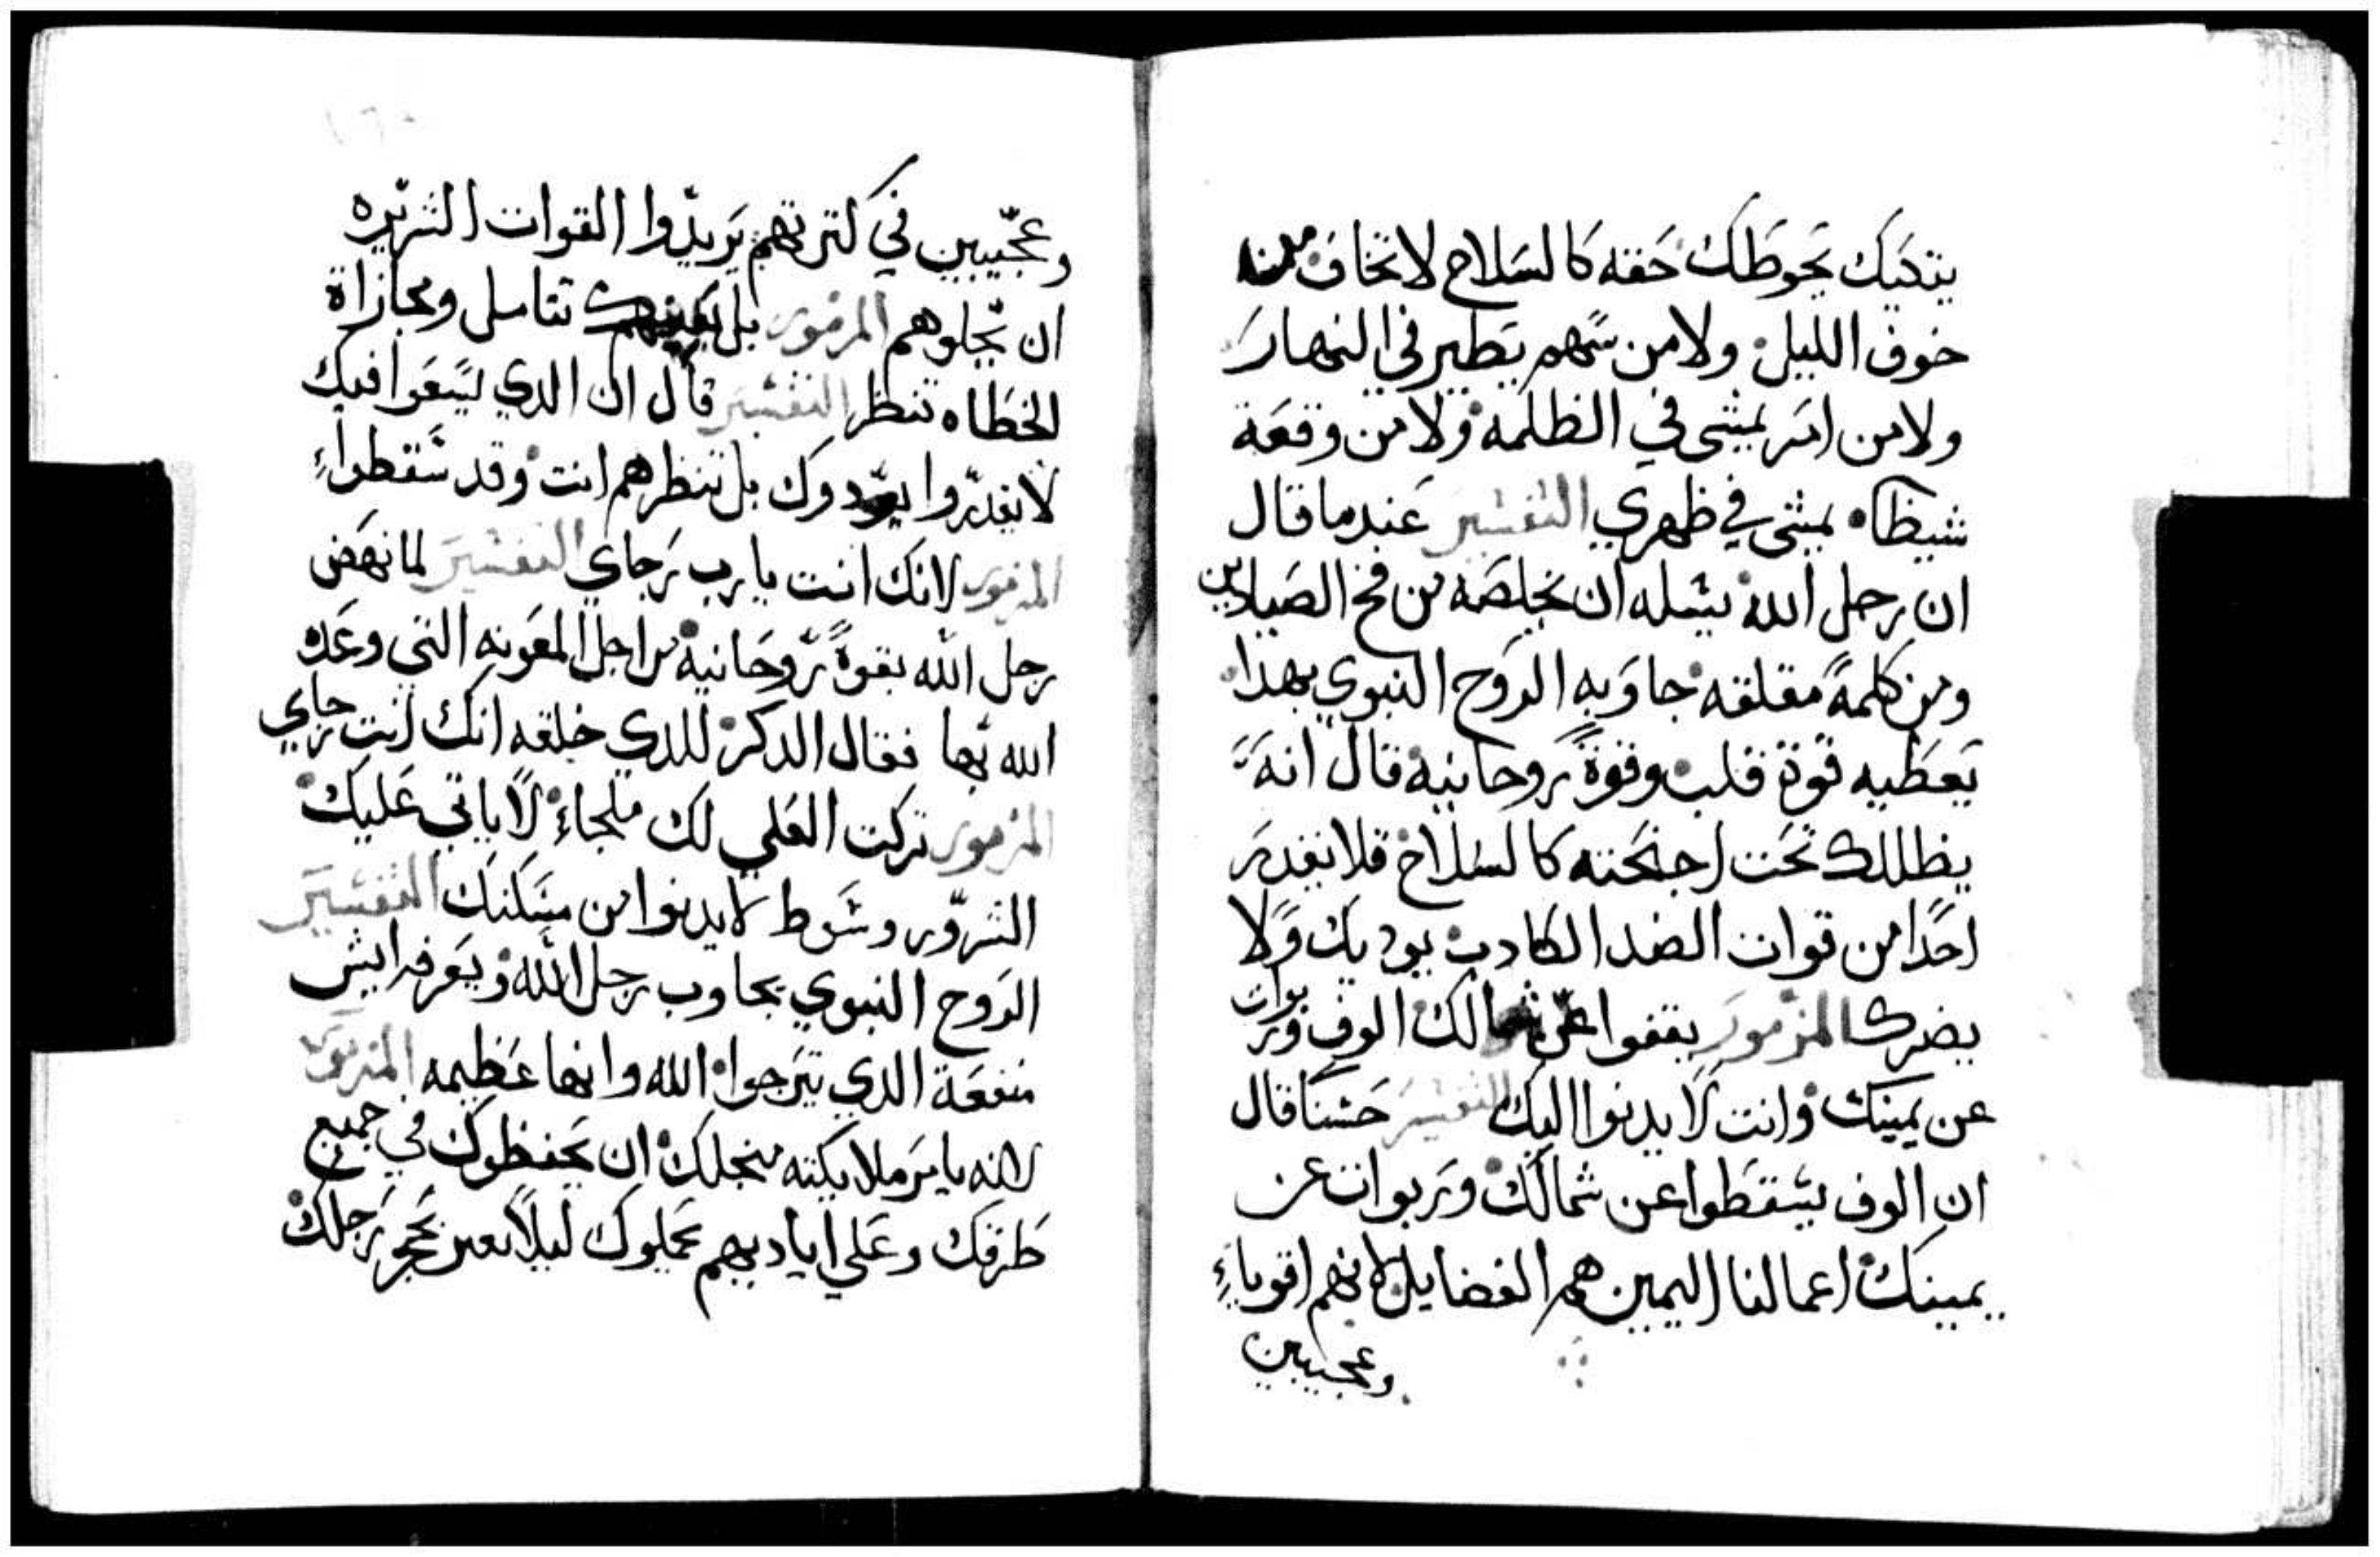 يتكيك يحوطك حقه كالسلاح لا تخاف من
خوف الليل ولا من سهم يطير في النهار
ولا من امر يمشي في الظلمه ولا من وقعة
شيطاه يمشي في ظهري التفسير عندما قال
ان رجل الله يسله ان يخلصه من فخ الصيادين
ومن كلمة مقلقه جاوبه الروح النبوي بهدا
يعطيه قوة قلب وقوة روحانيه قال انه
يظللك تحت اجنحته كالسلاح فلا يقدر
احدا من قوات الضد الكادب يوديك ولا
يضرك المزمور يقفوا عن شمالك الوف وربوات
عن يمينك وانت لا يدنوا اليك التفسير حسنا قال
ان الوف يسقطوا عن شمالك وربوات عن
يمينك اعمالنا اليمين هم الفضايل لانهم اقوياء
وعجيبين
وعجيبين في كثرتهم يريدوا القوات الشريره
ان يحلوهم المزمور بل بعينيك تتامل ومجازاة
الخطاه تنظر التفسير قال ان الدي يسعوا فيك
لا يقدروا يودوك بل تنظرهم انت وقد سقطواء
المزمور لانك انت يا رب رجاي التفسير لما نهض
رجل الله بقوة روحانية من اجل المعونه التي وعده
الله بها فقال الدكر للدي خلقه انك انت رجاي
المزمور تركت العلي لك ملجاء لا ياتي عليك
الشرور وسوط لا يدنوا من مسكنك التفسير
الروح النبوي يجاوب رجل الله ويعرفه ايش
منفعة الدي يترجوا الله وانها عظيمه المزمور
لانه يامر ملايكته منجلك ان يحفظوك في جميع
طرقك وعلي اياديهم يحملوك ليلا تعتر بحجر رجلك